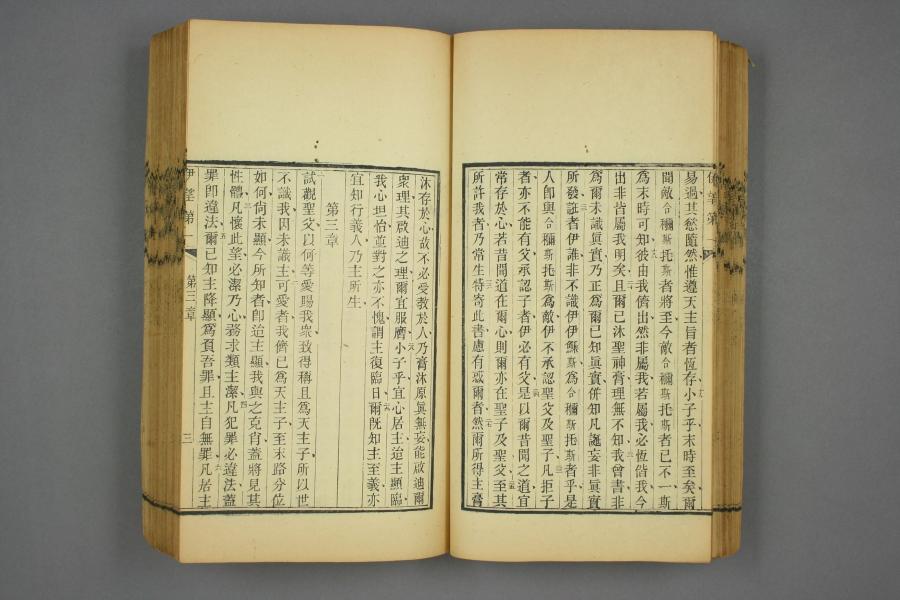 易過其慾隨然惟遵天主旨者恆存小子乎末時至矣爾
聞敵合穪斯托斯者將至今敵合穪斯托斯者已不一斯
為末時可知彼由我儕出然非屬我若屬我必恆偕我今
出非皆屬我明矣且爾已沐聖神膏理無不知我曾書非
為爾未識眞實乃正為爾已知眞實併知凡誕妄非眞實
所發誑者伊誰非不識伊伊穌斯為合穪斯托斯者乎是
人卽與合穪斯托斯為敵伊不承認聖父及聖子凡拒子
者亦不能有父承認子者伊必有父是以爾昔聞之道宜
常存於心若昔聞道在爾心則爾亦在聖子及聖父至其
所許我者乃常生特寄此書慮有惑爾者然爾所得主膏
沐存於心故不必受教於人乃膏沐原眞無妄能啟迪爾
衆理其啟迪之理爾宜服膺小子乎宜心居主迨主顯臨
我心坦怡重對之亦不愧謂主復臨日爾既知主至義亦
宜知行義人乃主所生
第三章
試觀聖父以何等愛賜我衆致得稱且為天主子所以世
不識我因未識主可愛者我儕已為天主子至末路分位
如何尚未顯今所知者卽迨主顯我與之克肖蓋將見其
性體凡懷此望必潔乃心務求類主潔凡犯罪必違法蓋
罪卽違法爾已知主降顯為負吾罪且主自無罪凡居主
伊望第一
第三章
三